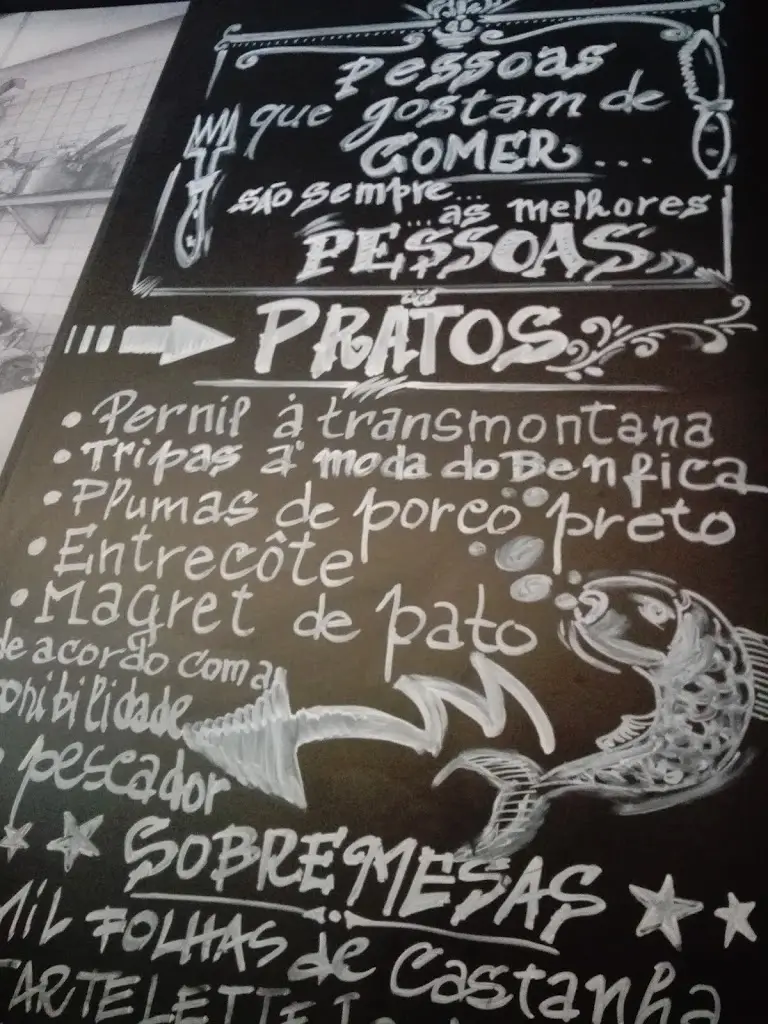 Pessoas
que gostam de
COMER...
são sempre...
...as melhores
PESSOAS
PRATOS
• Pernil à transmontana
• Tripas à moda do Benfica
• Plumas de porco preto
• Entrecôte
• Magret de pato
de acordo com a
pescador
SOBREMESAS
MIL FOLHAS de Castanha